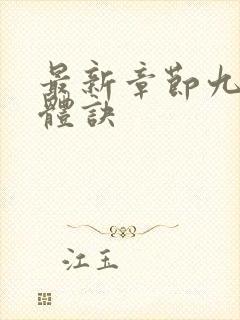 最新章節九
體訣
江玉